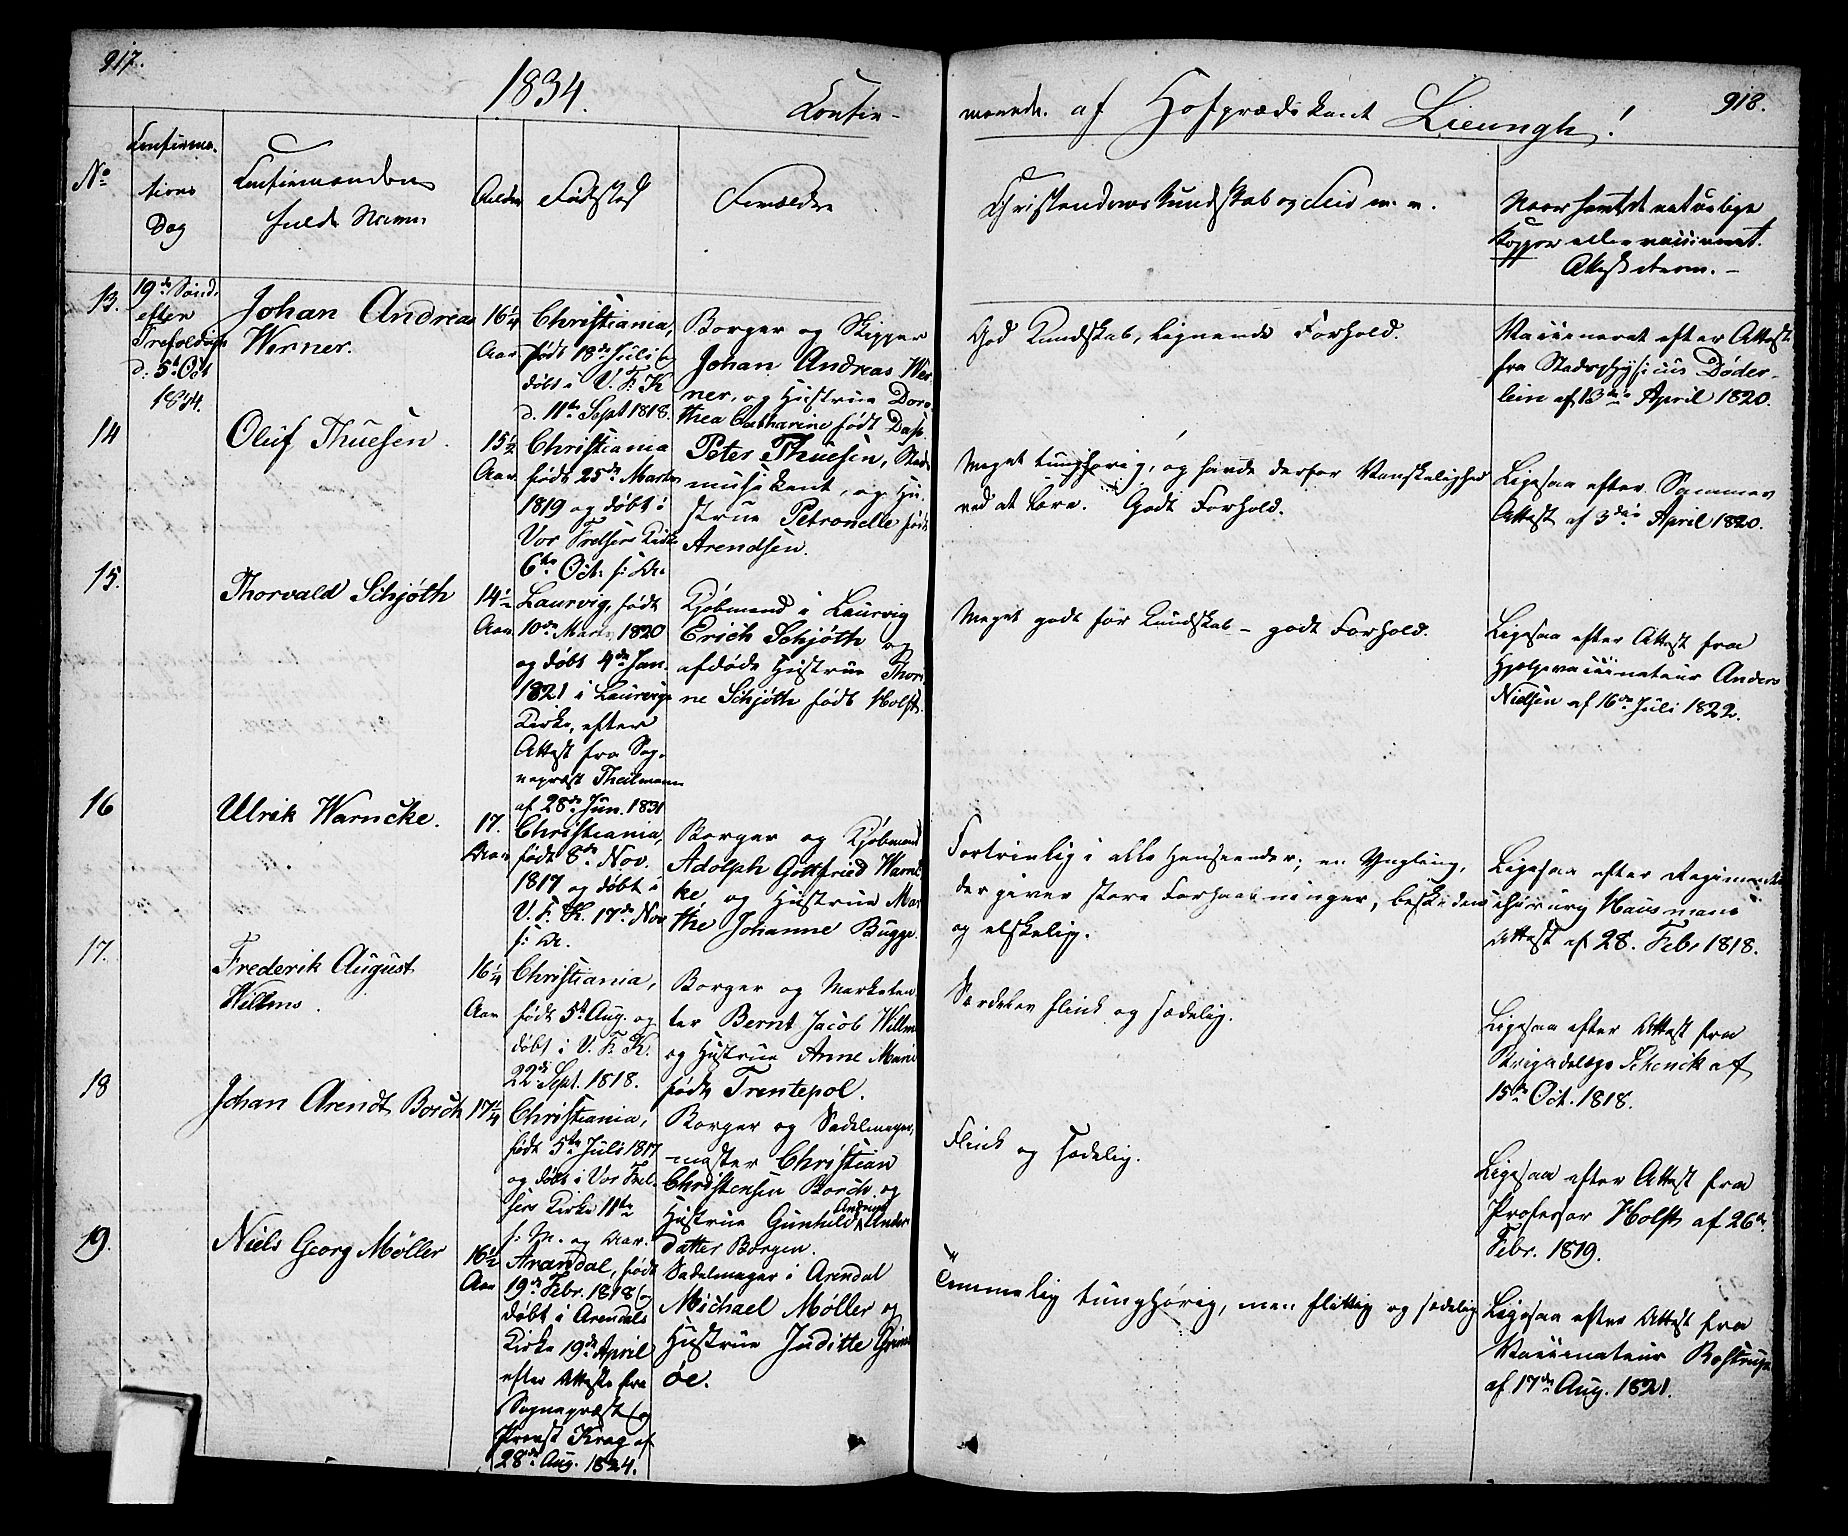 917.
1834.
Confir-
No
Confirma-
tions
Dag
Confirmandens
fulde Navn
Alder
Fødested
Forældre
13.
19de Sønd.
efter
Trefoldigh.
d. 5te Oct
1834.
Johan Andreas
Werner.
16 1/4
Aar
Christiania,
født 18de Juli og
døbt i V. F. K.
d. 11te Sept 1818.
Borger og Skipper
Johan Andreas Wer
ner, og Hustrue Doro
thea Catharine født Dasp.
14
Oluf Thuesen.
15 1/2
Aar
Christiania
født 25de Marts
1819 og døbt i
Vor Frelsers Kirke
6te Oct. s: A.
Peter Thuesen, Stads
musikant, og Hu
strue Petronelle født
Arendsen.
15.
Thorvald Schjøth
14 1/2
Aar
Laurvig, født
10de Marts 1820
og døbt 4de Jan.
1821 i Laurvigs
Kirke, efter
Attest fra Sog-
nepræst Theilmann
af 28de Jun. 1831
Kjøbmand i Laurvig
Erich Schjøth og
afdøde Hustrue Thori
ne Schjøth født Holst.
16
Ulrik Warncke.
17.
Aar
Christiania,
født 8de Nov.
1817 og døbt i
V. F. K. 17de Nov
s: A.
Borger og Kjøbmand
Adolph Gottfried Warnc
ke, og Hustrue Mar
the Johanne Bugge.
17.
Frederik August
Willms.
16 1/4
Aar
Christiania,
født 5te Aug. og
døbt i V. F. K.
22de Sept. 1818.
Borger og Marketen
ter Bernt Jacob Willms
og Hustrue Anne Marie
født Trentepol.
18
Johan Arendt Borch
17 1/4
Christiania,
født 5te Juli 1817
og døbt i Vor Frel-
sers Kirke 11te
s: M. og Aar.
Borger og Sadelmager-
mester Christian
Christensen Borch og
Hustrue Gunhild Andrine Anders
datter Borgen.
19.
Niels Georg Møller
16 1/2
Aar
Arendal, født
19de Febr. 1818 og
døbt i Arendals
Kirke 19de April
efter Attest fra
Sognepræst og
Provst Krog af
28de Aug. 1824.
Sadelmager i Arendal
Michael Møller og
Hustrue Juditte Grim
øe.
918.
merede af Hofprædikant Lieungh!
Christendomskundskab og Flid m. v.
Naar havt de naturlige
Kopper eller vaccineret.
Attest derom. -
God Kundskab, lignende Forhold.
Vaccineret efter Attest
fra Stadsphysicus Døder-
lein af 13de April 1820.
Meget tunghørig, og havde derfor Vanskelighed
ved at lære. Godt Forhold.
Ligesaa efter Sammes
Attest af 3die April 1820.
Meget god før Kundskab - godt Forhold.
Ligesaa efter Attest fra
Hjelpevaccinateur Anders
Nielsen af 16de Juli 1822.
Fortrinlig i alle Henseender; en Yngling,
der giver store Forhaabninger, beskeden
og elskelig.
Ligesaa efter Regiments
chirurg Hausmans
Attest af 28. Febr 1818.
Særdeles flink og sædelig.
Ligesaa efter Attest fra
Brigadelæge Schenck af
15de Oct. 1818.
Flink og sædelig.
Ligesaa efter Attest fra
Professor Holst af 26de
Febr. 1819.
Temmelig tunghørig, men flittig og sædelig
Ligesaa efter Attest fra
Vaccinateur Bostrup
af 17de Aug. 1821.